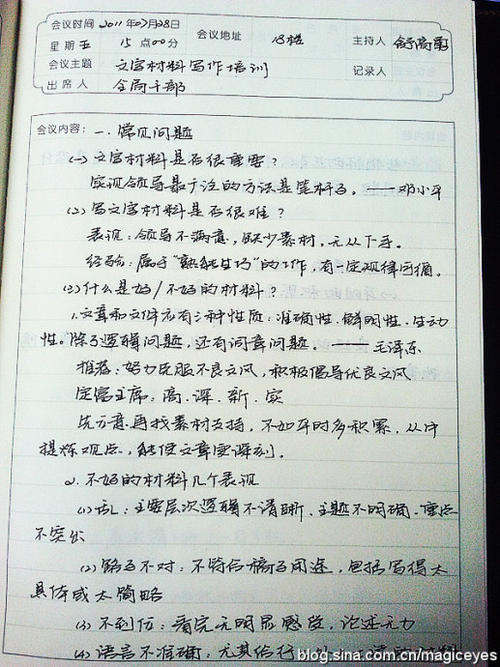 会议时间 2011年07月28日
星期五 15点00分 会议地址 18楼 主持人
会议主题 文字材料写作培训 记录人
出席人 全局干部
会议内容：一.常见问题
(一) 文字材料是否很重要？
实现领导最广泛的方法是笔杆子。——邓小平
(二) 写文字材料是否很难？
表现：领导不满意，缺少素材，无从下手。
经验：属于“熟能生巧”的工作，有一定规律可循。
(三) 什么是好/不好的材料？
1.文章和文件应有三种性质：准确性.鲜明性.生动
性。除了逻辑问题，还有词章问题。——毛泽东
推荐：努力克服不良文风，积极倡导优良文风
主席：高.深.新.实
先立意再找素材支持，不如平时多积累，从中
提炼观点，能使文章更深刻。
2.不好的材料几个表现
(1) 乱：主要层次逻辑不清晰.主题不明确.重点
不突出
(2) 路子不对：不符合稿子用途，包括写得太
具体或太简略
(3) 不到位：看完无明显感觉，论述无力
(4) 语言不准确，尤其
blog.sina.com.cn/magiceyes